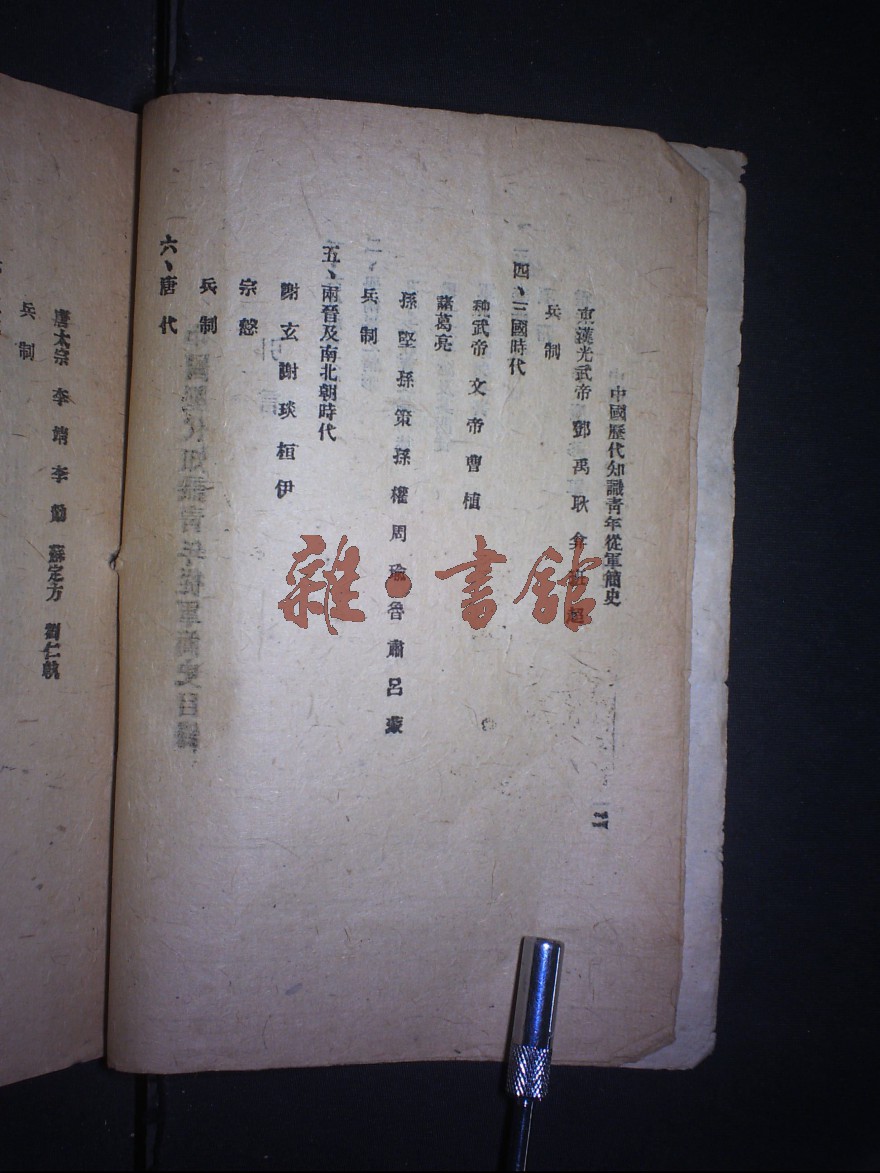 中國歷代知識青年從軍簡史
二
東漢光武帝 鄧禹 耿弇 班超
兵制
四、三國時代
魏武帝 文帝 曹植
諸葛亮
孫堅 孫策 孫權 周瑜 魯肅 呂蒙
兵制
五、兩晉及南北朝時代
謝玄 謝琰 桓伊
宗慤
兵制
六、唐代
唐太宗 李靖 李勣 蘇定方 劉仁軌
兵制
雜·書館